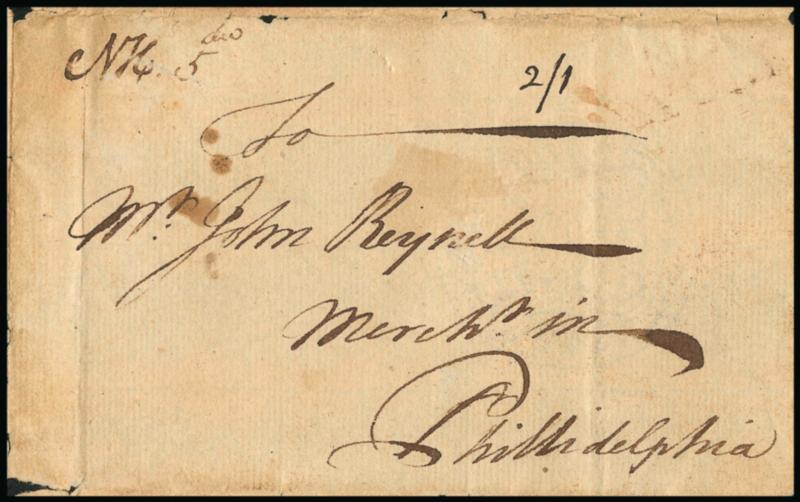 NH. 5 dw
2/1
To
Mr. John Reynell
Merchr. in
Phillidelphia